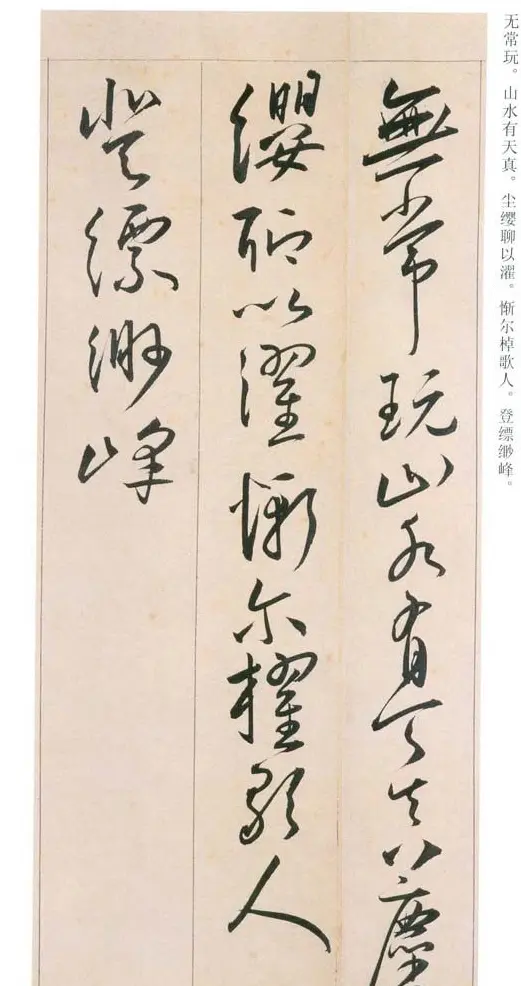 无常玩。山水有天真。尘缨聊以濯。惭尔棹歌人。登缥缈峰。
無常玩山水有天真塵
纓聊以濯慚尔櫂歌人
登縹緲峰